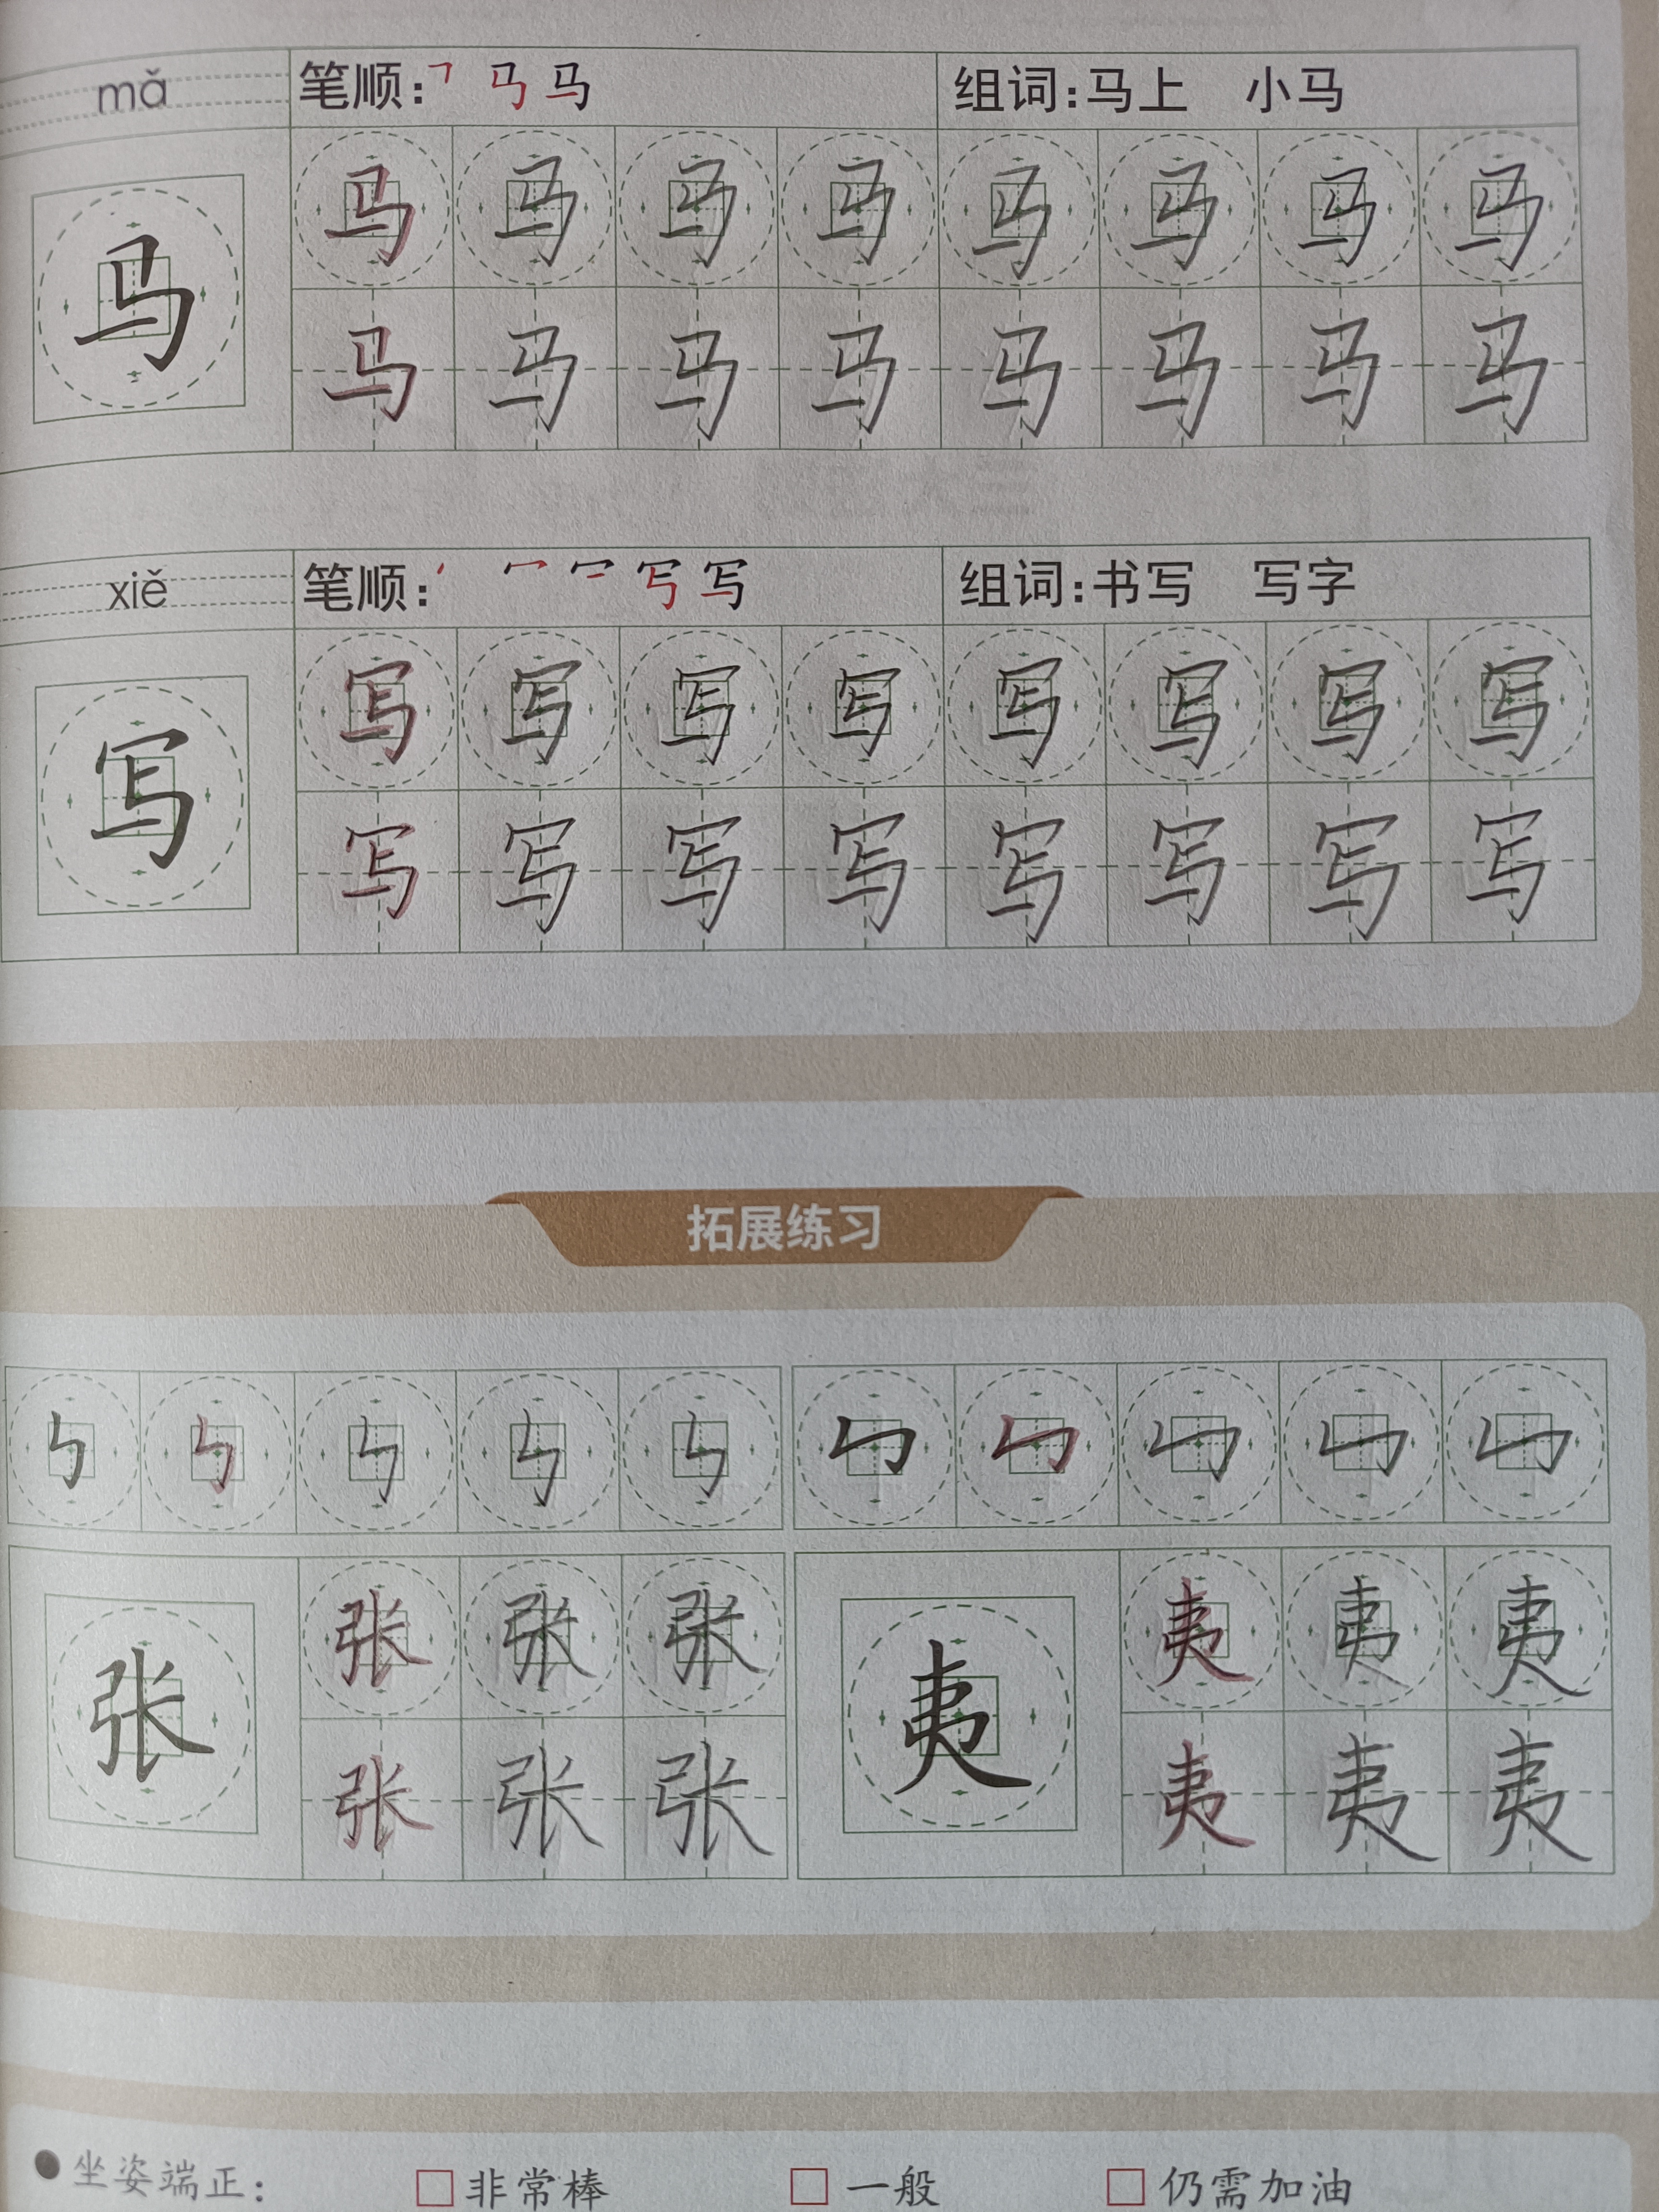 mǎ 笔顺: ㇕ 马 马 组词:马上 小马
马 马 马 马 马 马 马 马 马
马 马 马 马 马 马 马 马
xiě 笔顺: 丶 冖 写 写 组词:书写 写字
写 写 写 写 写 写 写 写 写
写 写 写 写 写 写 写 写
拓展练习
㇉ ㇉ ㇉ ㇉ ㇉ ㇉ ㇉ ㇉ ㇉ ㇉
张 张 张 张 夷 夷 夷 夷
张 张 张 夷 夷 夷
●坐姿端正: □非常棒 □一般 □仍需加油